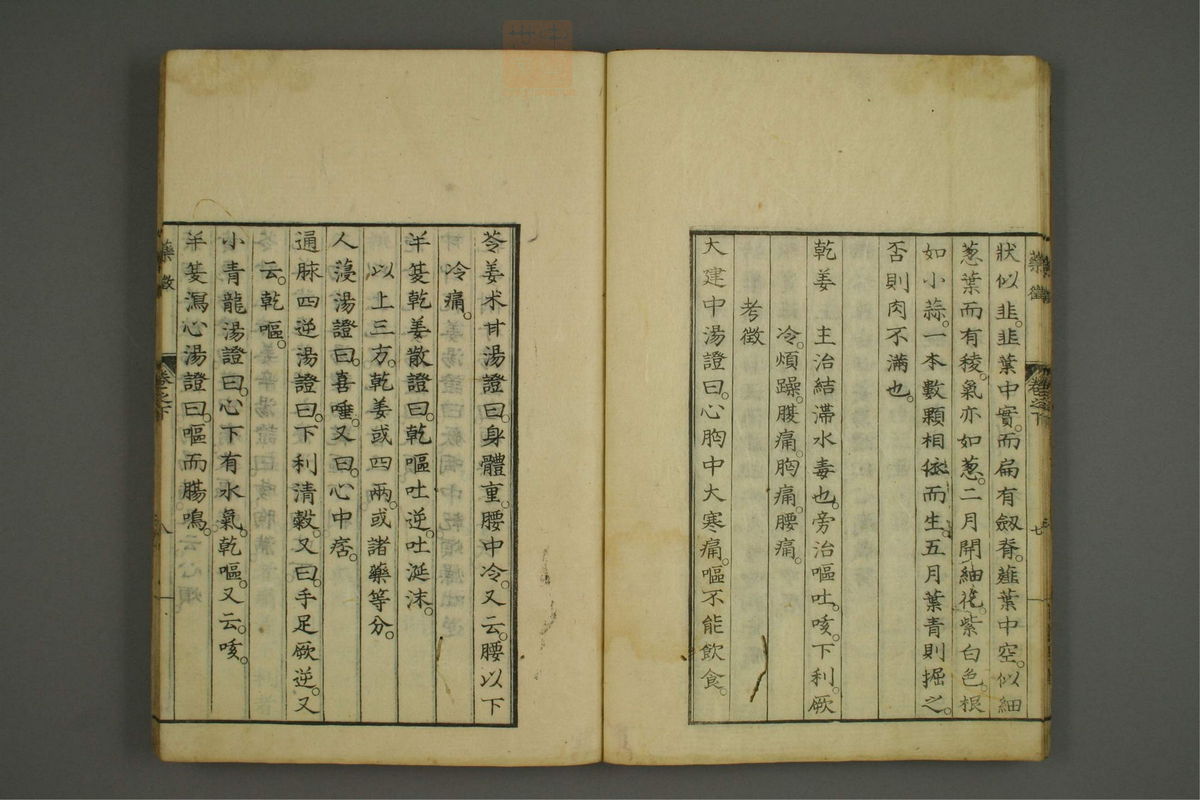 藥徵
卷之下
七
狀似韭。韭葉中實。而扁有劔脊。薤葉中空。似細
葱葉而有稜。氣亦如葱。二月開細花。紫白色。根
如小蒜。一本數顆相依而生。五月葉青則掘之。
否則肉不滿也。
乾姜　主治結滯水毒也。旁治嘔吐。咳。下利。厥
冷。煩躁。腹痛。胸痛。腰痛。
考徵
大建中湯證曰。心胸中大寒痛。嘔不能飲食。
苓姜朮甘湯證曰。身體重。腰中冷。又云。腰以下
冷痛。
半夏乾姜散證曰。乾嘔吐逆。吐涎沫。
以上三方。乾姜或四兩。或諸藥等分。
人蓡湯證曰。喜唾。又曰。心中痞。
通脉四逆湯證曰。下利清穀。又曰。手足厥逆。又
云。乾嘔。
小青龍湯證曰。心下有水氣。乾嘔。又云。咳。
半夏瀉心湯證曰。嘔而腸鳴。
藥徵
卷之下
八